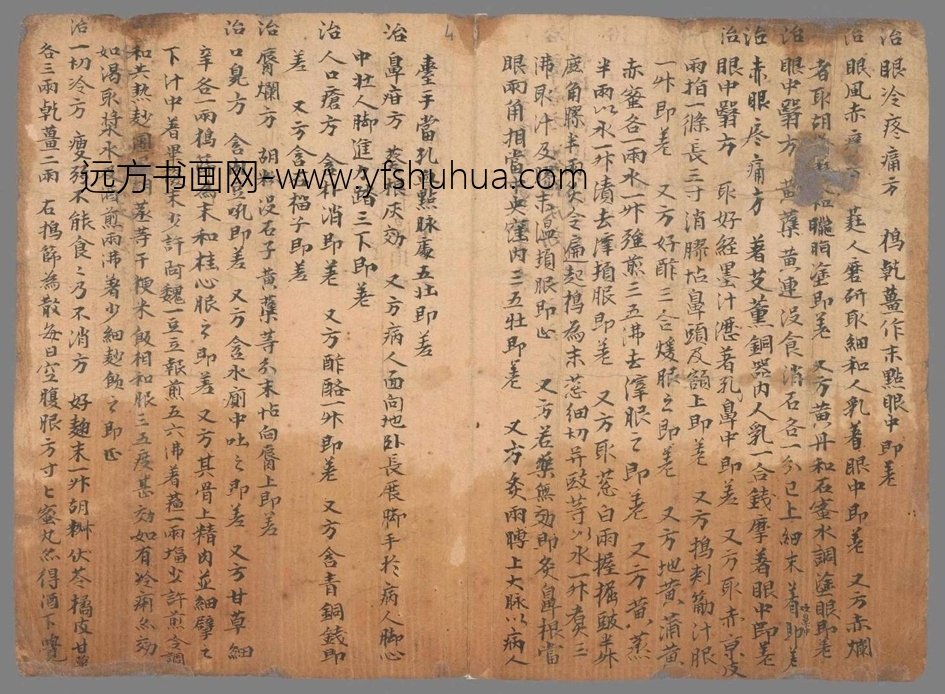 治眼冷疼痛方 搗乹薑作末點眼中即差
治眼風赤 莛人磨研取細和人乳著眼中即差 又方赤爛
者取胡 臘脂塗即差 又方黃丹和石蜜水調塗眼即差
治眼中翳方 黃蘗黃連没食消石各一分已上細末著即差
治赤眼疼痛方 著艾薰銅器內人乳一合錢摩著眼中即差
治眼中翳方 取好經墨汁瀝著孔鼻中即差 又方取赤京皮
兩指一條長三寸消膠怗鼻頭及額上即差 又方搗刺薊汁服
一升即差 又方好酢三合煖服之即差 又方地黃蒲黃
赤蜜各一兩水一升強煎三五沸去滓服之即差 又方黃蒸
半兩以水一升漬去滓頓服即差 又方取蔥白兩握掘豉半升
鹿角膠半兩炙令扁起搗為末蔥細切并豉等以水一升煑三
沸取汁及末溫頓服即止 又方若藥無効即灸鼻根當
眼兩角相當央窪內三五壯即差 又方灸兩聘上大脉以病人
臺手當孔點脉處五壯即差
治鼻疳方 灰効 又方病人面向地卧長展脚手扵病人脚心
中壯人脚進 踏三下即差
治人口瘡方 含 消即差 又方酢酪一升即差 又方含青銅錢即
差 又方含石榴子即差
治脣爛方 胡粉没石子黃蘗等分末怗向脣上即差
治口臰方 含 吼即差 又方含水廁中吐之即差 又方甘草細
辛各一兩 為末和桂心服之即差 又方其骨上精肉並細擘之
下汁中著畢 末少許向魏一豆報煎五六沸著 一兩 少許煎令調
和共熱麨 蒸芋干粳米飯相和服三五度甚効如有冷痢亦効
如渴取漿水 煎兩沸著少細麨飲之即止
治一切冷方 瘦弱不能食之乃不消方 好麹末一升胡糾伏苓橘皮甘草
各三兩乹薑二兩 右搗篩為散每日空腹服方寸匕蜜丸亦得酒下
远方书画网-www.yfshuhua.com